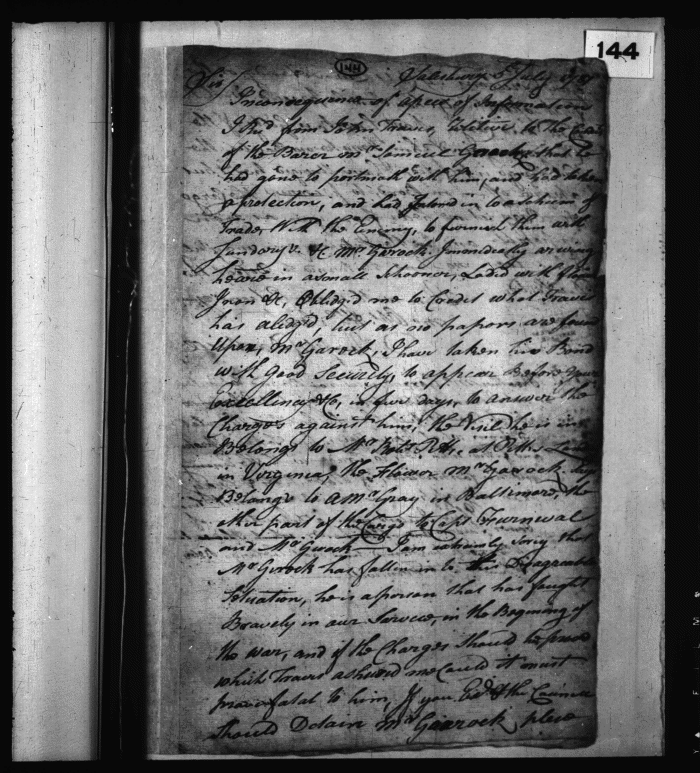 144
144
Sir Salisbury 5 July 1781
In consequence of a peece of Information
I Rd. from John Travis, Relitive to the
of the Barer Mr Samuel Garock, that he
had gone to portsmoth with him, and had taken
a protection, and had Entred in to a scheme of
Trade With the Enemy, to furnish them with
Sundarys &C Mr Garock Immoediatly arriving
heare in a small Schooner, Laded with flower
Iron &c, Obligd me to Credit what Travis
has aledg'd, but as no papers are foun
Upon, Mr Garock, I have taken his Bond
with Good Security, to appear Before your
Excellency &C, in five days, to answer the
Charges against him, the Visil he is in
Belongs to Mr Robt Pitt, at Pitts
in Virginea, the Flower Mr Garrock says
Belongs to a Mr Gray in Baltimore, the
other part of the Cargo to Capt Furnewal
and Mr Garock — I am extremly sorey that
Mr Garock has fallin in to this Disagreable
Situation, he is a person that has fought
Bravely in our Service, in the Begining of
the war, and if the Charges should be proved
which Travis ashured me Could it must
prove fatal to him, If you Exd. & the Councel
should Detain Mr Gaarock, pleas